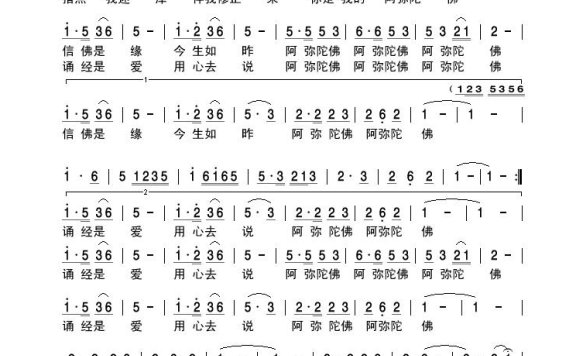 1·5 36 | 5 - | 1·2 36 | 5 - | 5·5 53 | 6·6 53 | 53 21 | 2 - |
信佛是 缘 今生如 昨 阿弥陀佛 阿弥陀佛 阿弥陀 佛
诵经是 爱 用心去 说 阿弥陀佛 阿弥陀佛 阿弥陀 佛
1
(123 5356
1·5 36 | 5 - | 1·2 36 | 5·3 | 2·2 23 | 2 6 2 | 1 - | 1 - |
信佛是 缘 今生如 昨 阿弥陀佛 阿弥陀 佛
1·6 | 5 1235 | 1 6165 | 5·3 213 | 2·3 | 2 6 2 | 1 - | 1 - :|
2
1·5 36 | 5 - | 1·2 36 | 5·3 | 2·2 23 | 2 6 2 | 1 - | 1 - |
诵经是 爱 用心去 说 阿弥陀佛 阿弥陀 佛
1·5 36 | 5 - | 1·2 36 | 5 - | 5·5 53 | 6·6 53 | 53 21 | 2 - |
诵经是 爱 用心去 说 阿弥陀佛 阿弥陀佛 阿弥陀 佛
1·5 36 | 5 - | 1·2 36 | 5·3 | 2·2 23 | 2 6 2 | 1 - | 1 - |
诵经是 爱 用心去 说 阿弥陀佛 阿弥陀 佛